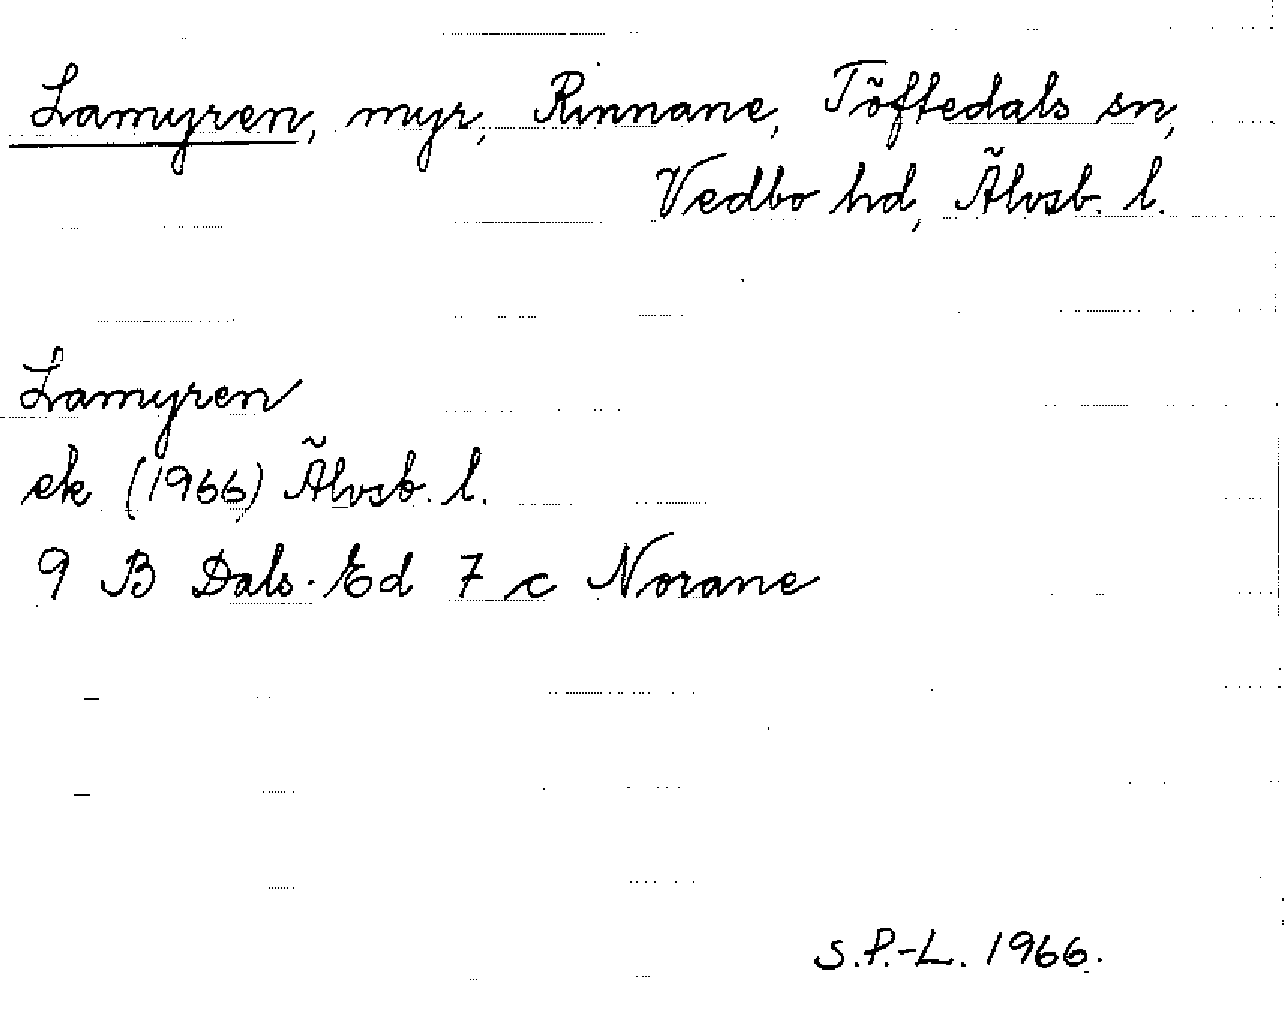 Lamyren, myr, Rinnane, Töftedals sn,
Vedbo hd, Älvsb. l.
Lamyren
ek (1966) Älvsb. l.
9 B Dals-Ed 7 c Norane
S.P.-L. 1966.